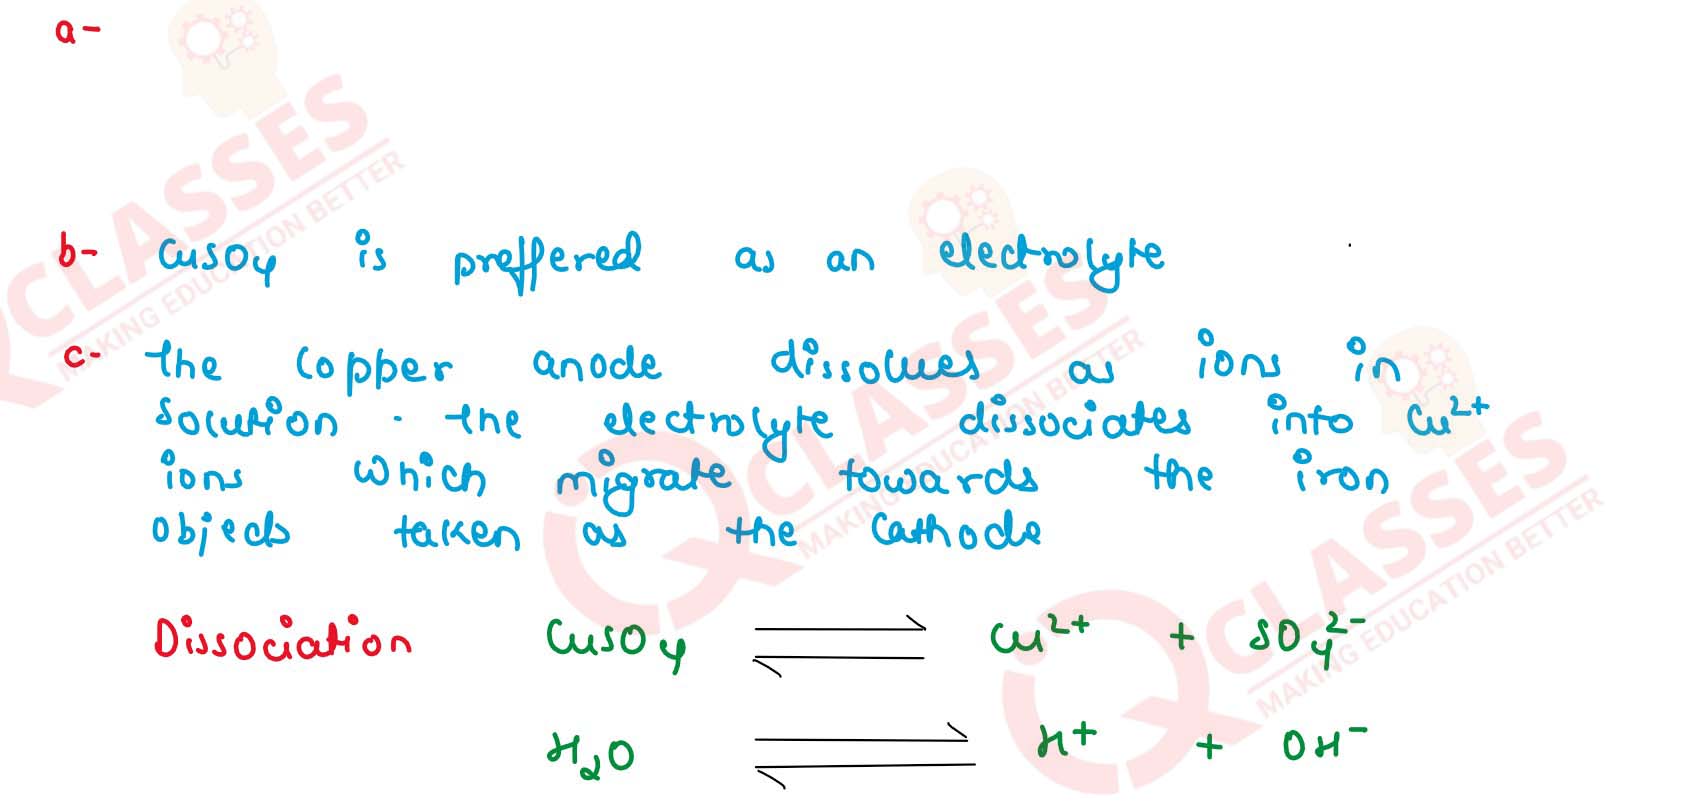 a-
b- CuSO4 is preffered as an electrolyte
c- The Copper anode dissolves as ions in
solution. The electrolyte dissociates into Cu²⁺
ions which migrate towards the iron
objects taken as the cathode
Dissociation CuSO₄ ⇌ Cu²⁺ + SO₄²⁻
H₂O ⇌ H⁺ + OH⁻
CLASSES
MAKING EDUCATION BETTER
QCLASSES
MAKING EDUCATION BETTER
QCLASSES
MAKING EDUCATION BETTER